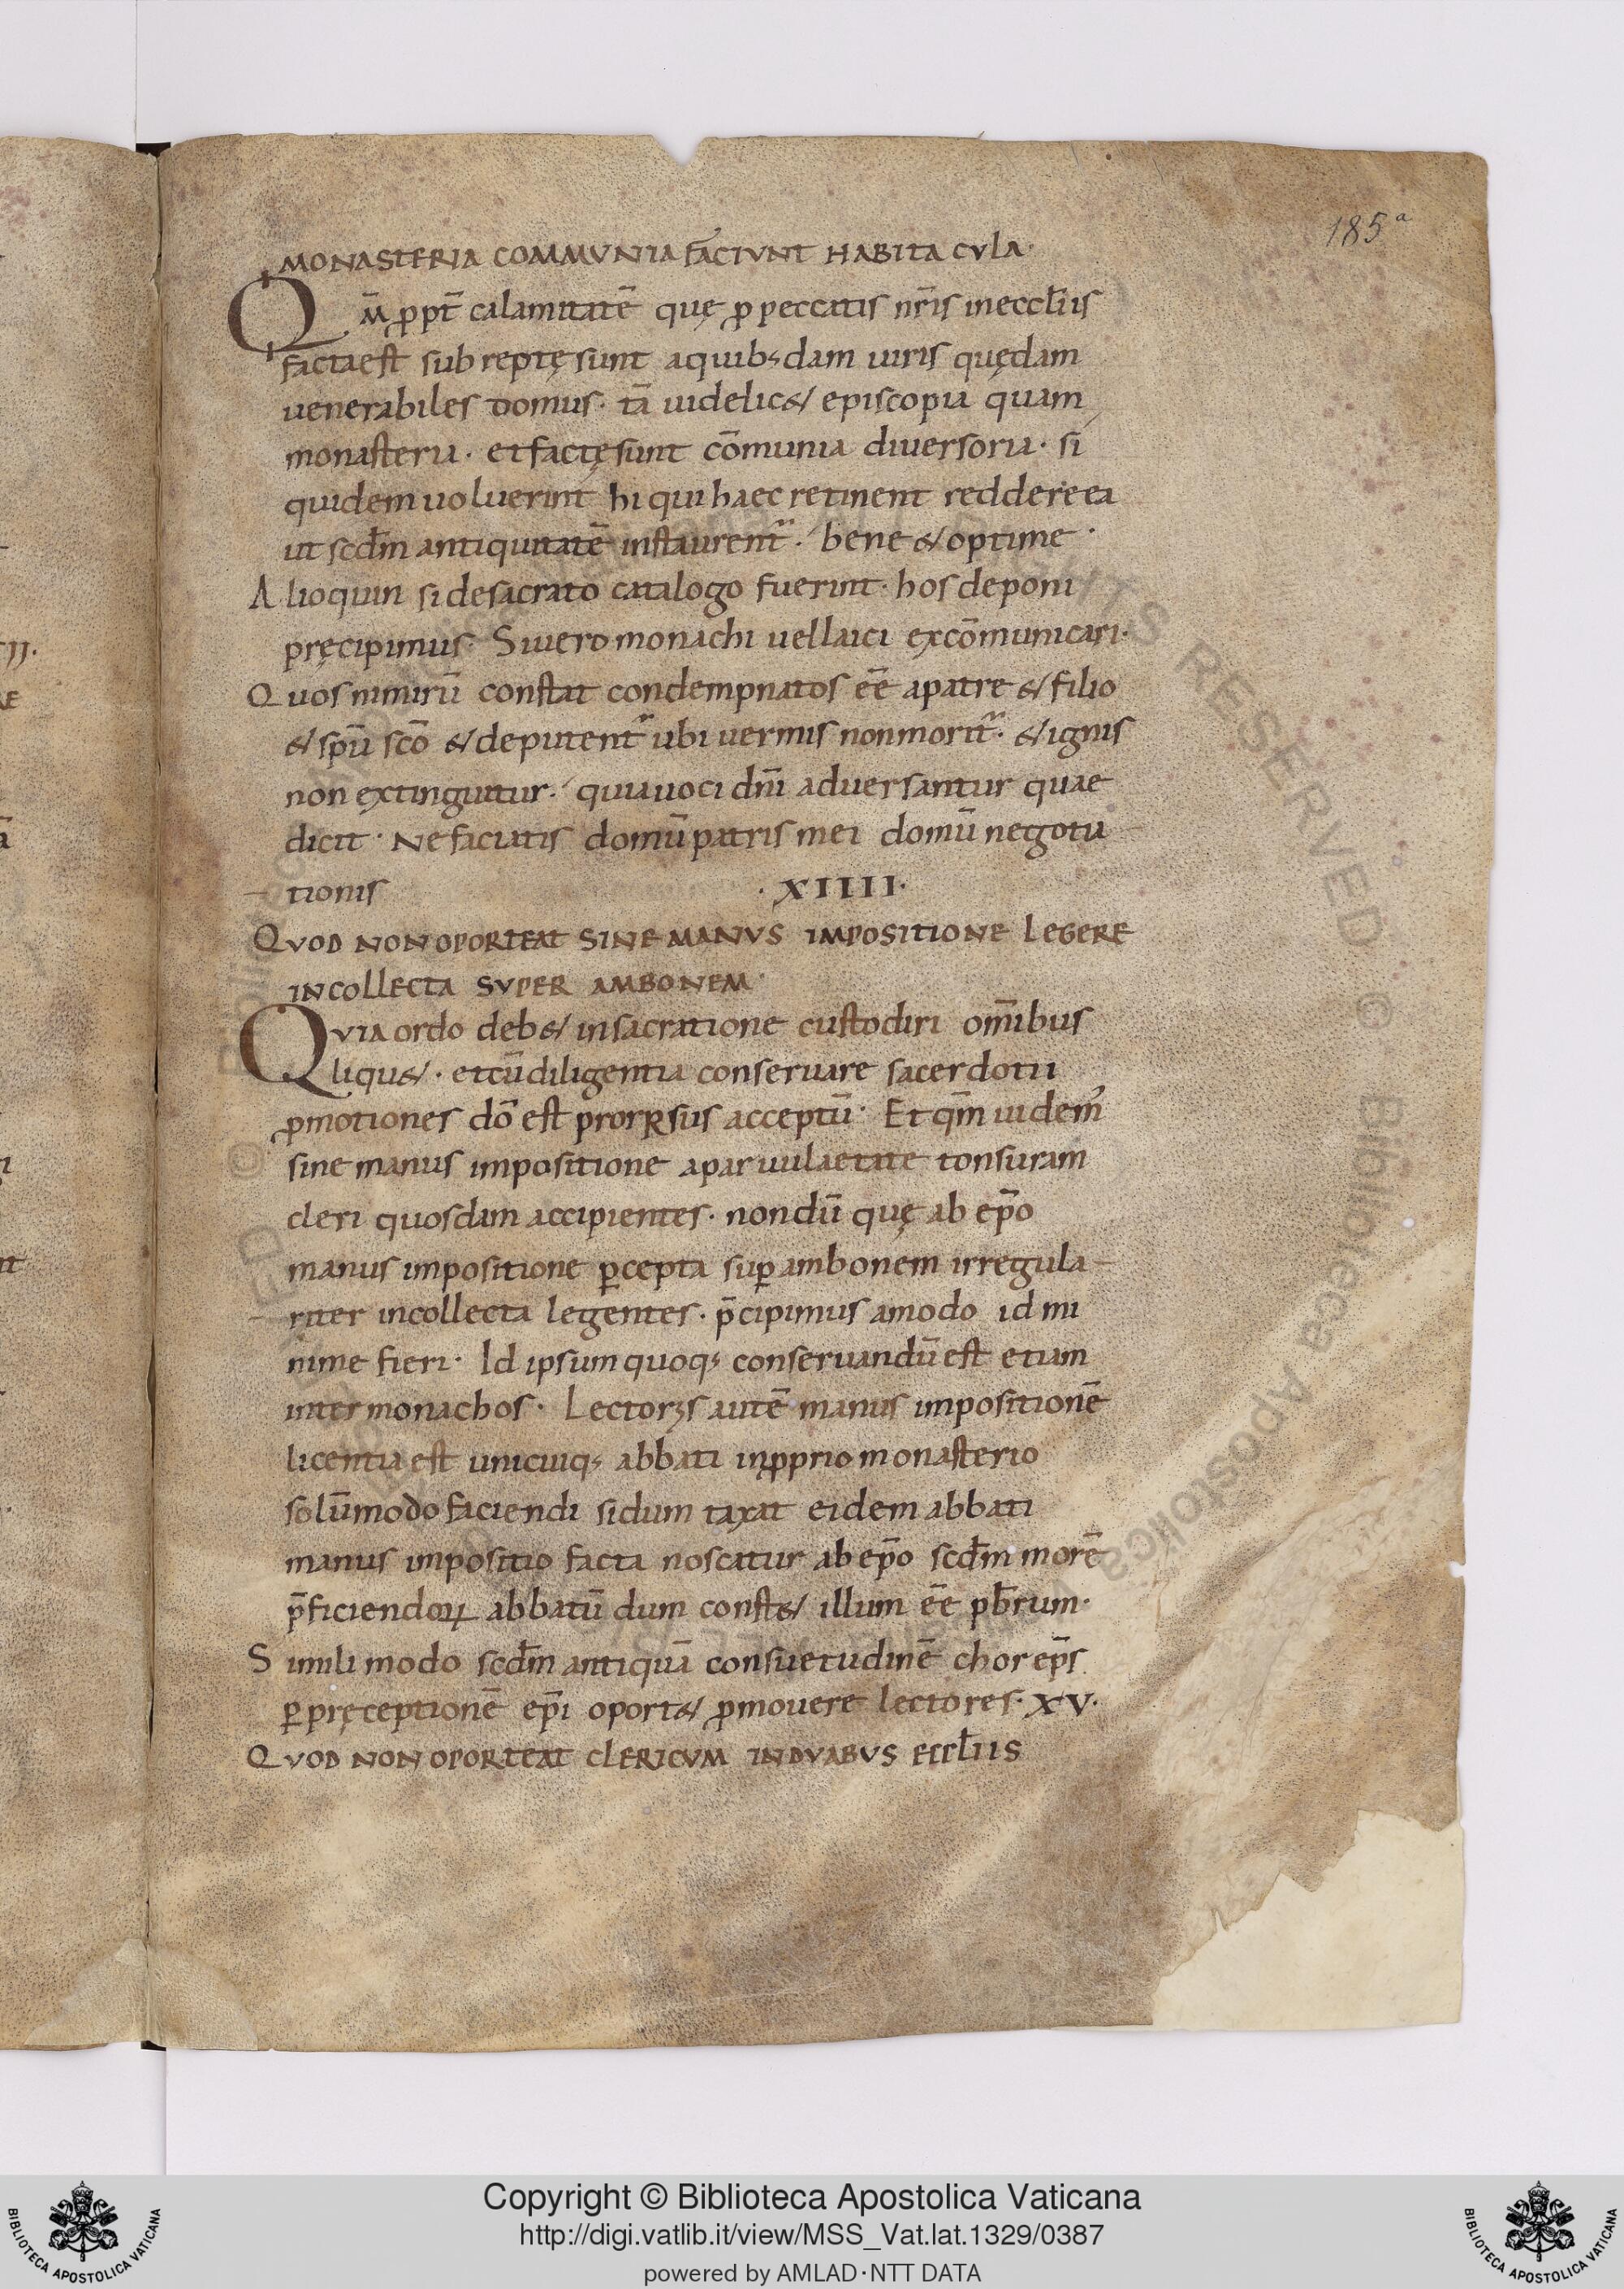 185ª
MONASTERIA COMMVNIA FACIVNT HABITA CVLA·
Qm̄ ꝓpt̄ calamitatē quę ꝓ peccatis nr̄is ineccl̄iis
factaest subreptęsunt aquibꝰdam uiris quędam
uenerabiles domus· tā uidelic& episcopia quam
monasteria· etfactęsunt cōmunia diuersoria· si
quidem uoluerint hi qui haec retinent reddere ea
ut scd̄m antiquitatē instaurent᷑· bene & optime·
Alioquin si desacrato catalogo fuerint· hos deponi
pręcipimus· Siuero monachi uellaici excōmunicari·
Quos nimirū constat condempnatos eē apatre & filio
& sp̄u scō & deputent᷑ ubi uermis nonmorit᷑· & ignis
non extinguitur· quiauoci dn̄i aduersantur quae
dicit· Ne faciatis domū patris mei domū negotia
tionis ·XIIII·
QVOD NON OPORTEAT SINE MANVS IMPOSITIONE LEGERE
IN COLLECTA SVPER AMBONEM·
QVIA ordo deb& insacratione custodiri om̄ibus
liqu&· etcūdiligentia conseruare sacerdotii
ꝓmotiones dō est prorRsus acceptū· Et qm̄ uidem᷒
sine manus impositione aparuulaetate tonsuram
cleri quosdam accipientes· nondū quę ab ep̄o
manus impositione ꝑcepta suꝑ ambonem irregula-
-riter incollecta legentes· p̄cipimus amodo id mi
nime fieri· Id ipsum quoqꝫ conseruandū est etiam
inter monachos· Lectorꝫs autē manus impositionē
licentia est unicuiqꝫ abbati inꝓprio monasterio
solūmodo faciendi sidum taxat eidem abbati
manus impositio facta noscatur ab ep̄o scd̄m morē
p̄ficiendoꝝ abbatū dum const& illum eē pb̄rum·
Simili modo scd̄m antiquā consuetudinē chor ep̄s
ꝑ pręceptionē ep̄i oport& ꝓmouere lectores· XV·
QVOD NON OPORTEAT CLERICVM IN DVABVS ECCL̄IIS
Copyright © Biblioteca Apostolica Vaticana
http://digi.vatlib.it/view/MSS_Vat.lat.1329/0387
powered by AMLAD·NTT DATA
BIBLIOTECA APOSTOLICA VATICANA
BIBLIOTECA APOSTOLICA VATICANA